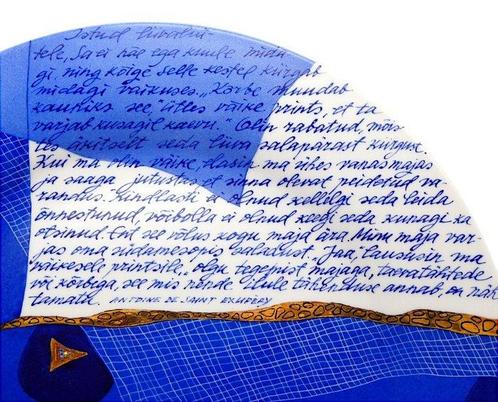 Istud liivaluitele,
tele, Sa ei näe ega kuule mida-
gi, ning kõige selle kestel kiirgab
midagi vaikuses. „Kõrbe muudab
kauniks see," ütles väike prints, et ta
varjab kusagil kaevu." Olin rabatud, mõis-
tes äkitselt seda liiva salapärast kiirgust.
Kui ma olin väike, elasin ma ühes vanas majas
ja saaga jutustas, et sinna olevat peidetud va-
randus. Kindlasti ei olnud kellelgi seda leida
õnnestunud, võibolla ei olnud keegi seda kunagi ka
otsinud. Ent see võlus kogu maja ära. Minu maja var-
jas oma südamesopis saladust." Jaa," laus„isin ma
väikesele printsile, „olgu tegemist majaga, taevatähtede
või kõrbega, see mis nende ilule tähenduse annab, on näh-
tamatu. ANTOINE DE SAINT EXUPERY